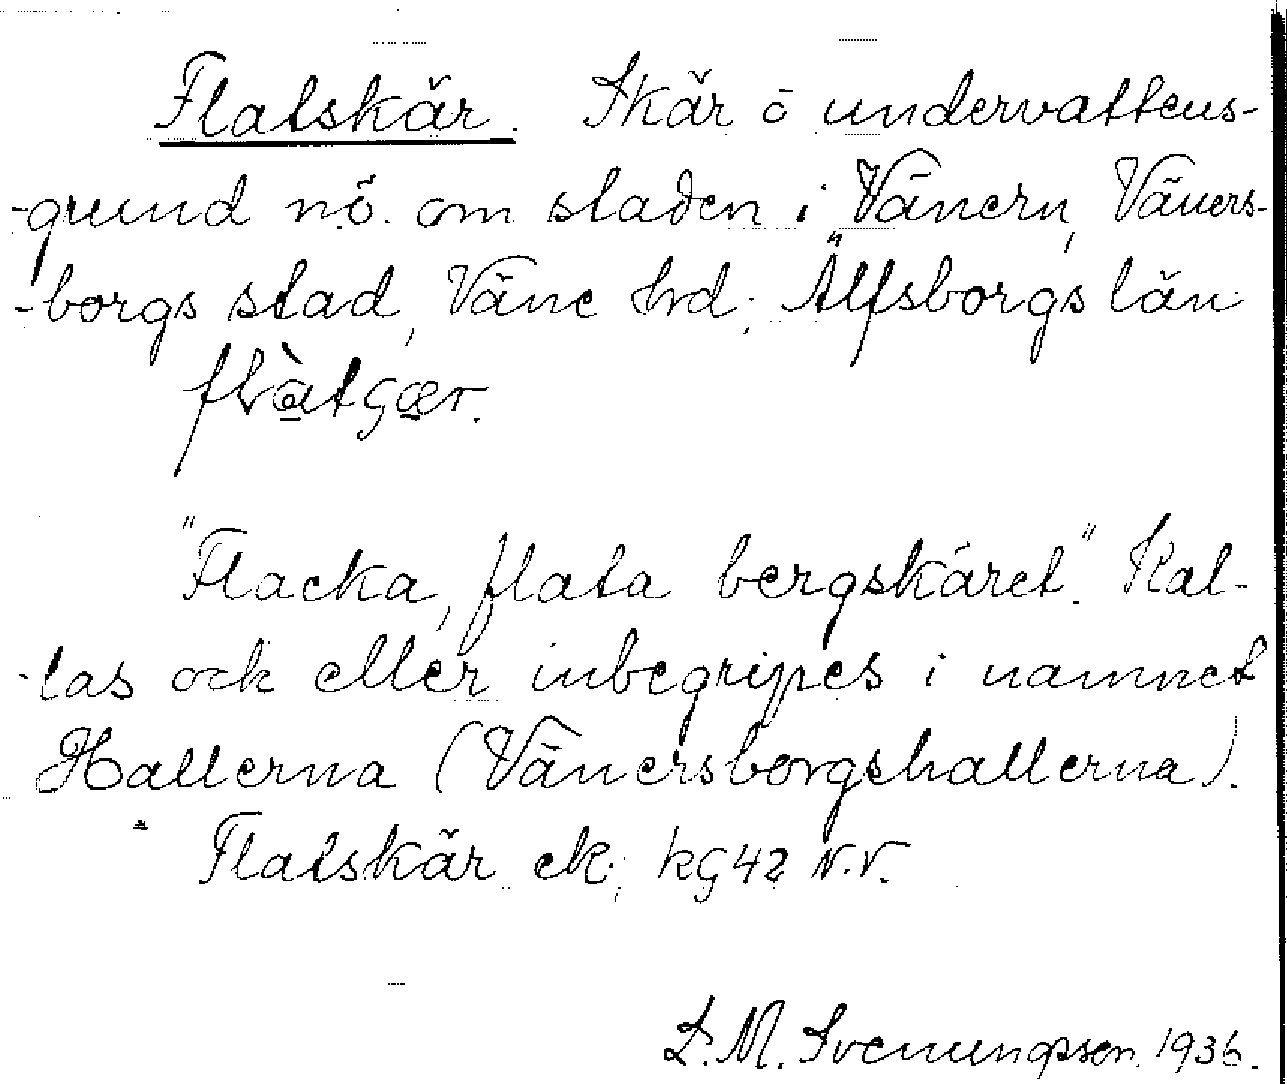 Flatskär. Skär o undervattens-
-grund nö. om staden i Vänern, Väners-
-borgs stad, Väne hd; Älfsborgs län

"Flacka, flata bergskäret". Kal-
-las ock eller inbegripes i namnet
Hallerna (Vänersborgshallerna).
Flatskär ek; kG42 N.V.
1936.